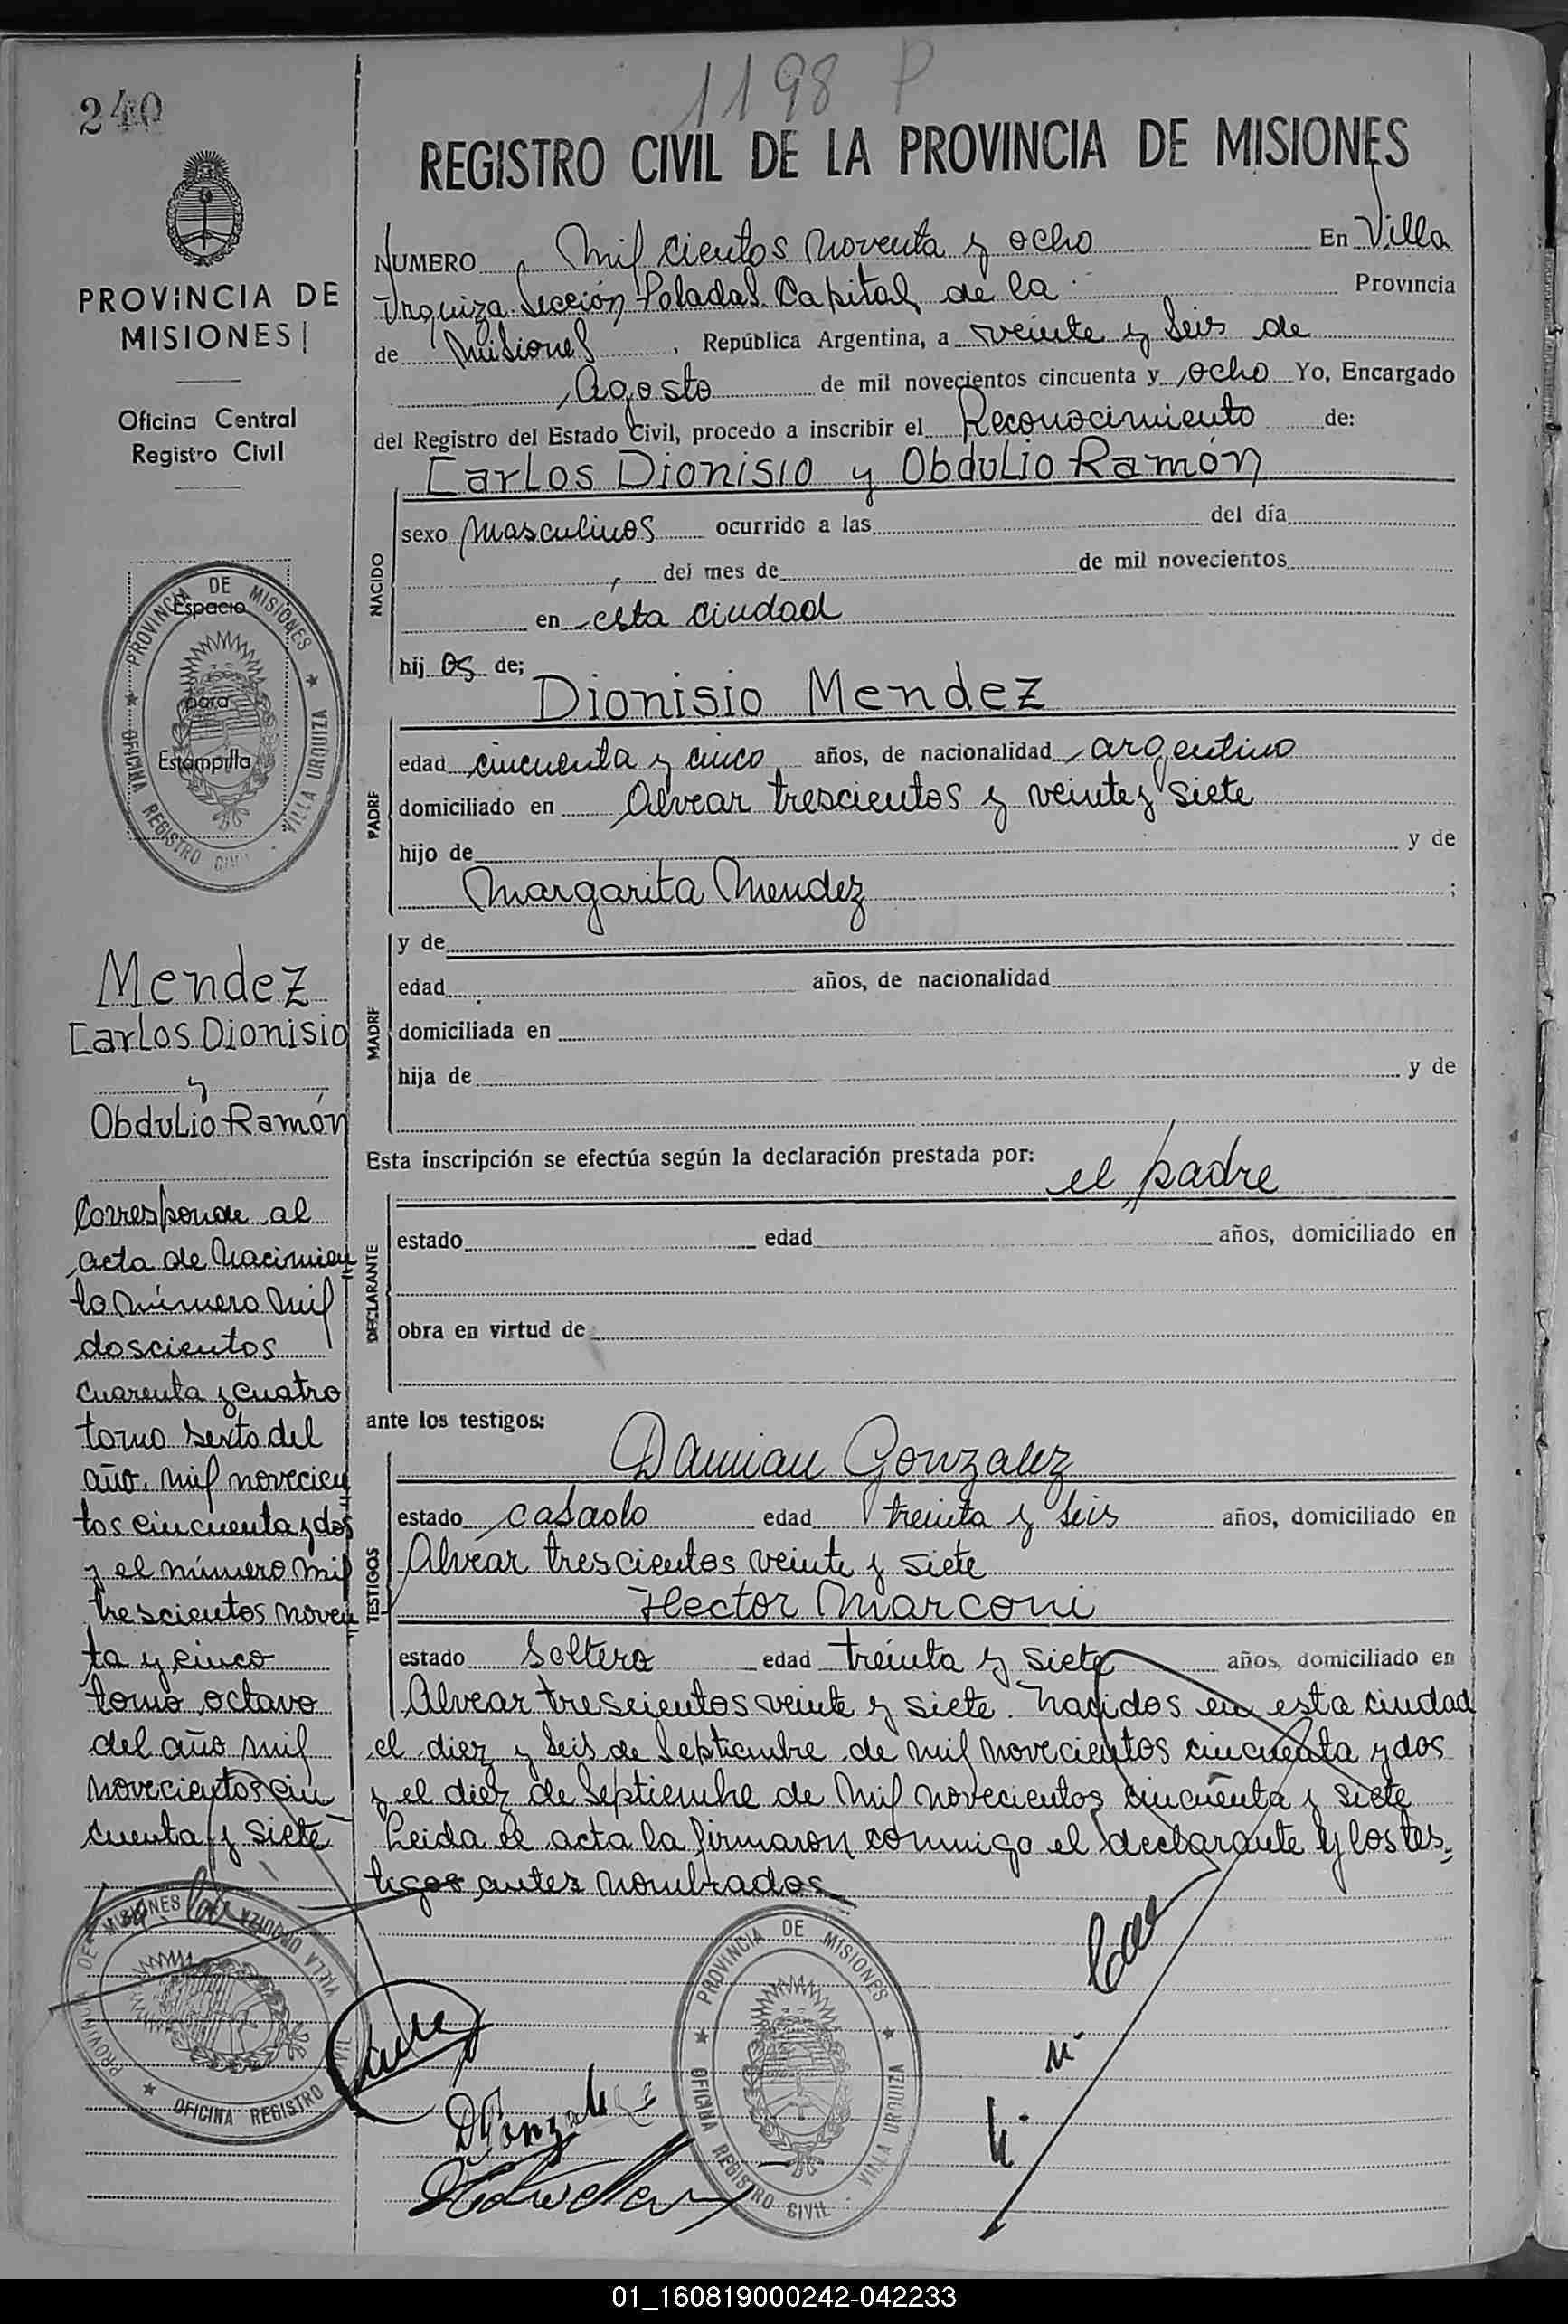 1198 P
240
REGISTRO CIVIL DE LA PROVINCIA DE MISIONES
PROVINCIA DE
MISIONES
Oficina Central
Registro Civil
PROVINCIA DE MISIONES
Espacio
para
Estampilla
OFICINA REGISTRO CIVIL - VILLA URQUIZA
Mendez
Carlos Dionisio
y
Obdulio Ramón
Corresponde al
acta de Nacimien
to número mil
doscientos
cuarenta y cuatro
tomo sexto del
año mil novecien
tos cincuenta y dos
y el número mil
trescientos noven
ta y cinco
tomo octavo
del año mil
novecientos cin
cuenta y siete
PROVINCIA DE MISIONES
OFICINA REGISTRO CIVIL VILLA URQUIZA
NUMERO mil cientos noventa y ocho En Villa
Urquiza Sección Posadas Capital de la Provincia
de Misiones, República Argentina, a veinte y seis de
Agosto de mil novecientos cincuenta y ocho Yo, Encargado
del Registro del Estado Civil, procedo a inscribir el Reconocimiento de:
Carlos Dionisio y Obdulio Ramón
NACIDO
sexo masculinos ocurrido a las del día
del mes de de mil novecientos
en esta ciudad
hijos de;
Dionisio Mendez
PADRE
edad cincuenta y cinco años, de nacionalidad argentino
domiciliado en Alvear trescientos y veinte y siete
hijo de y de
Margarita Mendez ;
MADRE
y de
edad años, de nacionalidad
domiciliada en
hija de y de
Esta inscripción se efectúa según la declaración prestada por: el padre
DECLARANTE
estado edad años, domiciliado en
obra en virtud de
ante los testigos:
Damian Gonzalez
TESTIGOS
estado casado edad treinta y seis años, domiciliado en
Alvear trescientos veinte y siete
Hector Marconi
estado Soltero edad treinta y siete años, domiciliado en
Alvear trescientos veinte y siete. Nacidos en esta ciudad
el diez y seis de Septiembre de mil novecientos cincuenta y dos
y el diez de Septiembre de mil novecientos cincuenta y siete
Leida el acta la firmaron conmigo el declarante y los tes-
tigos antes nombrados
PROVINCIA DE MISIONES
OFICINA REGISTRO CIVIL - VILLA URQUIZA
DGonzalez
01_160819000242-042233